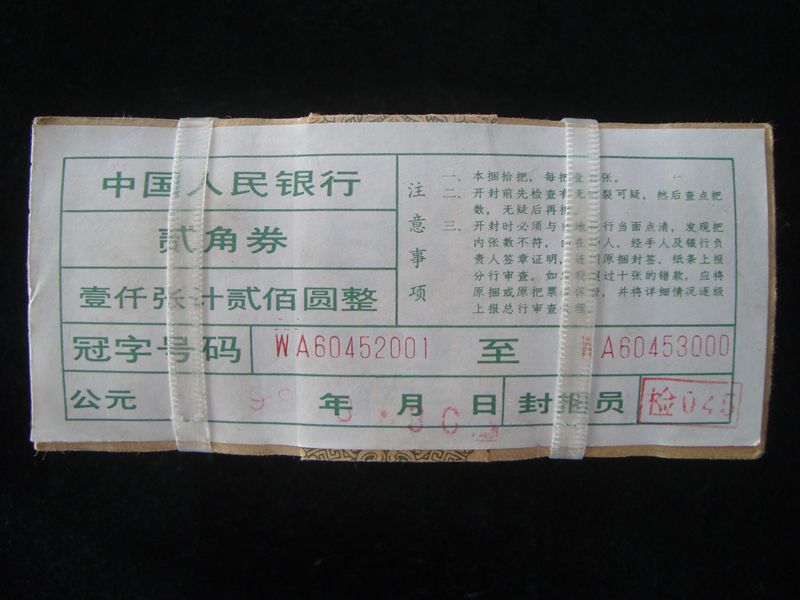 中国人民银行
贰角券
壹仟张计贰佰圆整
冠字号码 WA60452001 至 A60453000
公元 年 月 日 封捆员 检045
注意事项
一、本捆拾把，每把壹 张。
二、开封前先检查有 裂可疑，然后查点把
数，无疑后再
三、开封时必须与 行当面点清，发现把
内张数不符， 人、经手人及银行负
责人签章证明，连 原捆封签、纸条上报
分行审查。如 过十张的错款，应将
原捆或原把票 ，并将详细情况逐级
上报总行审查 理。